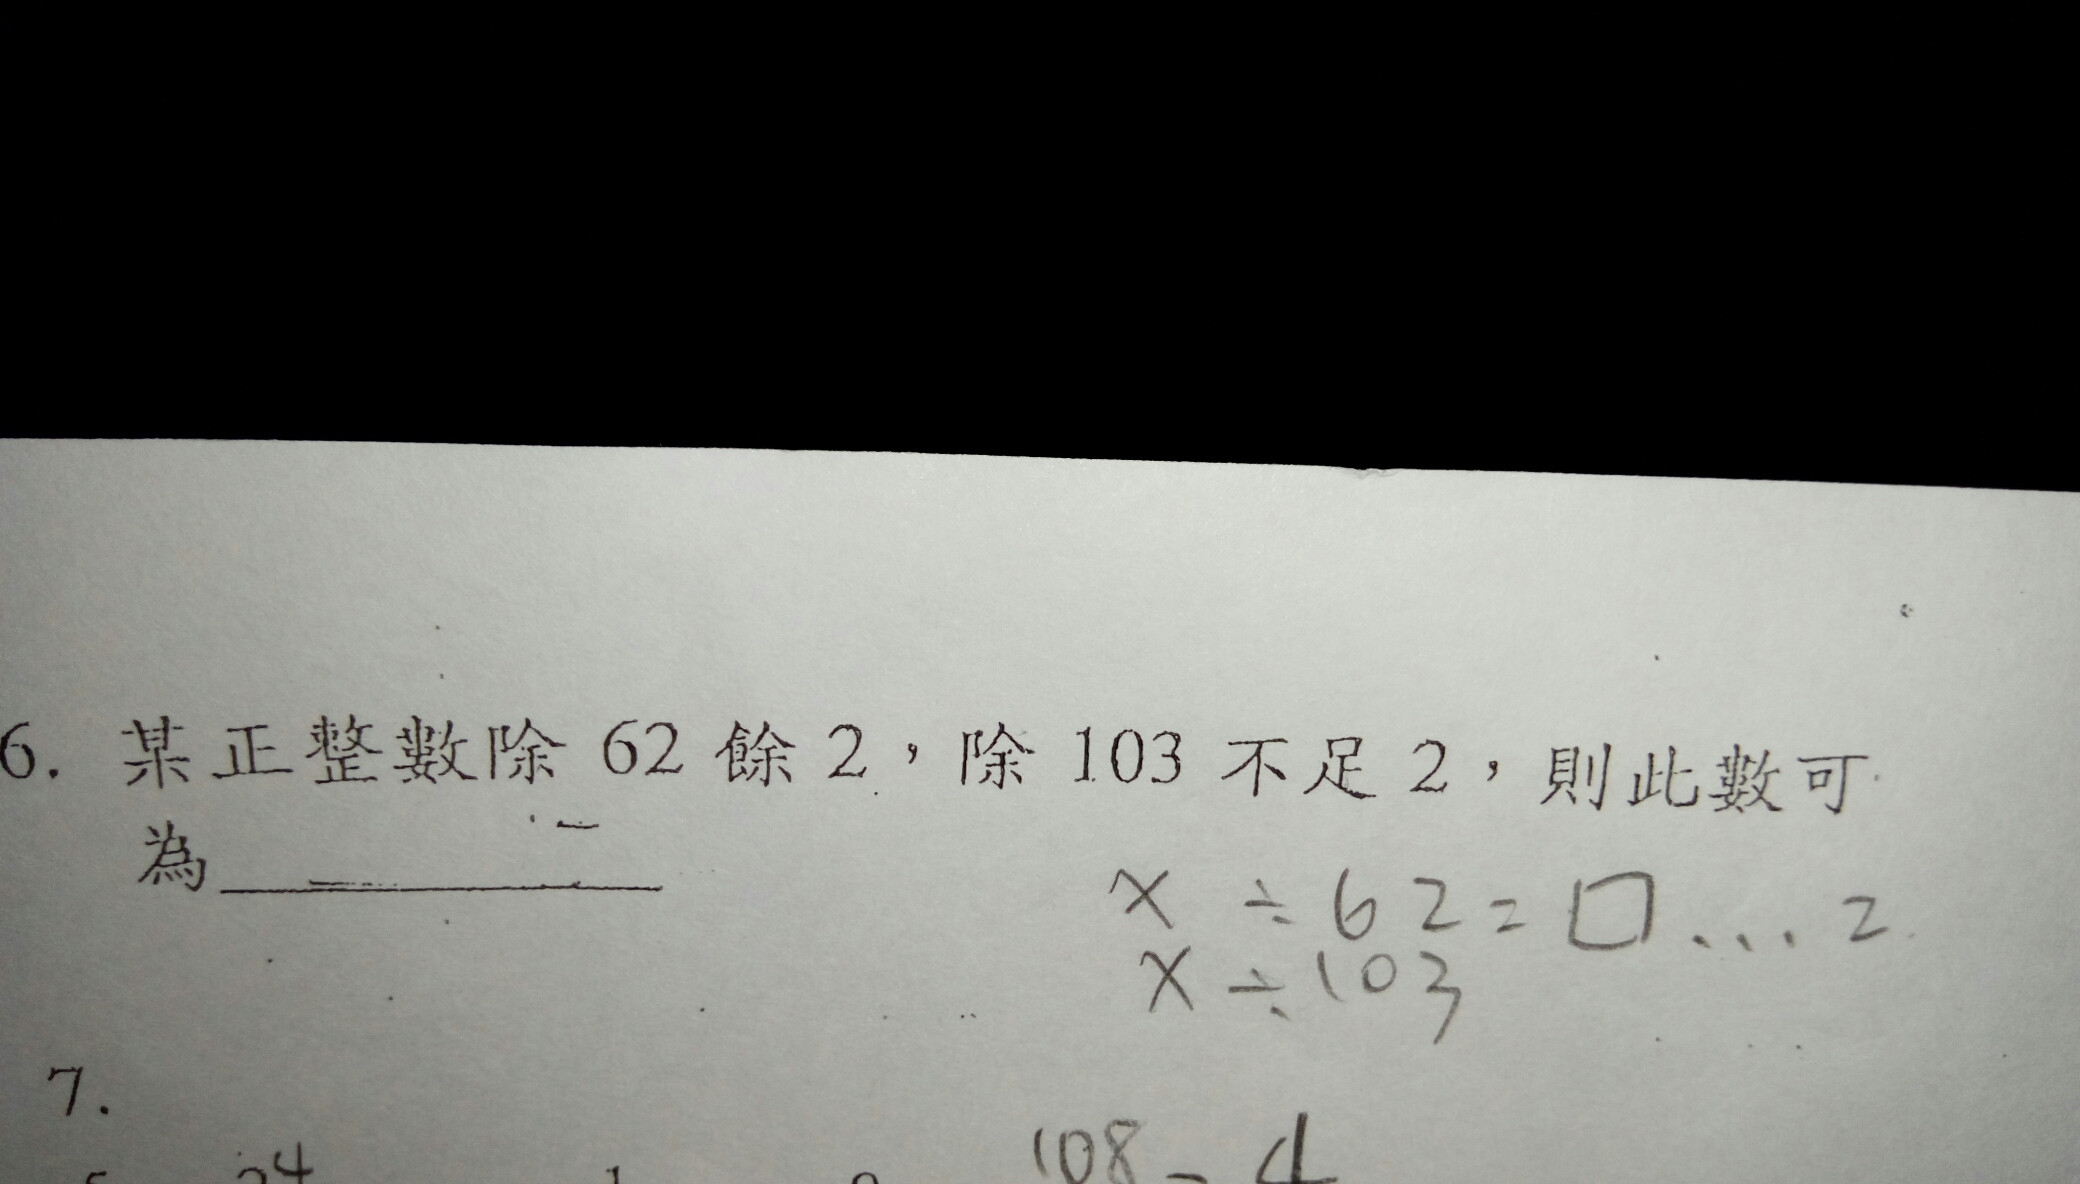 6. 某正整數除 62 餘 2，除 103 不足 2，則此數可
為
x ÷ 62 = □ ... 2
x ÷ 103
7.
24
108 - 4